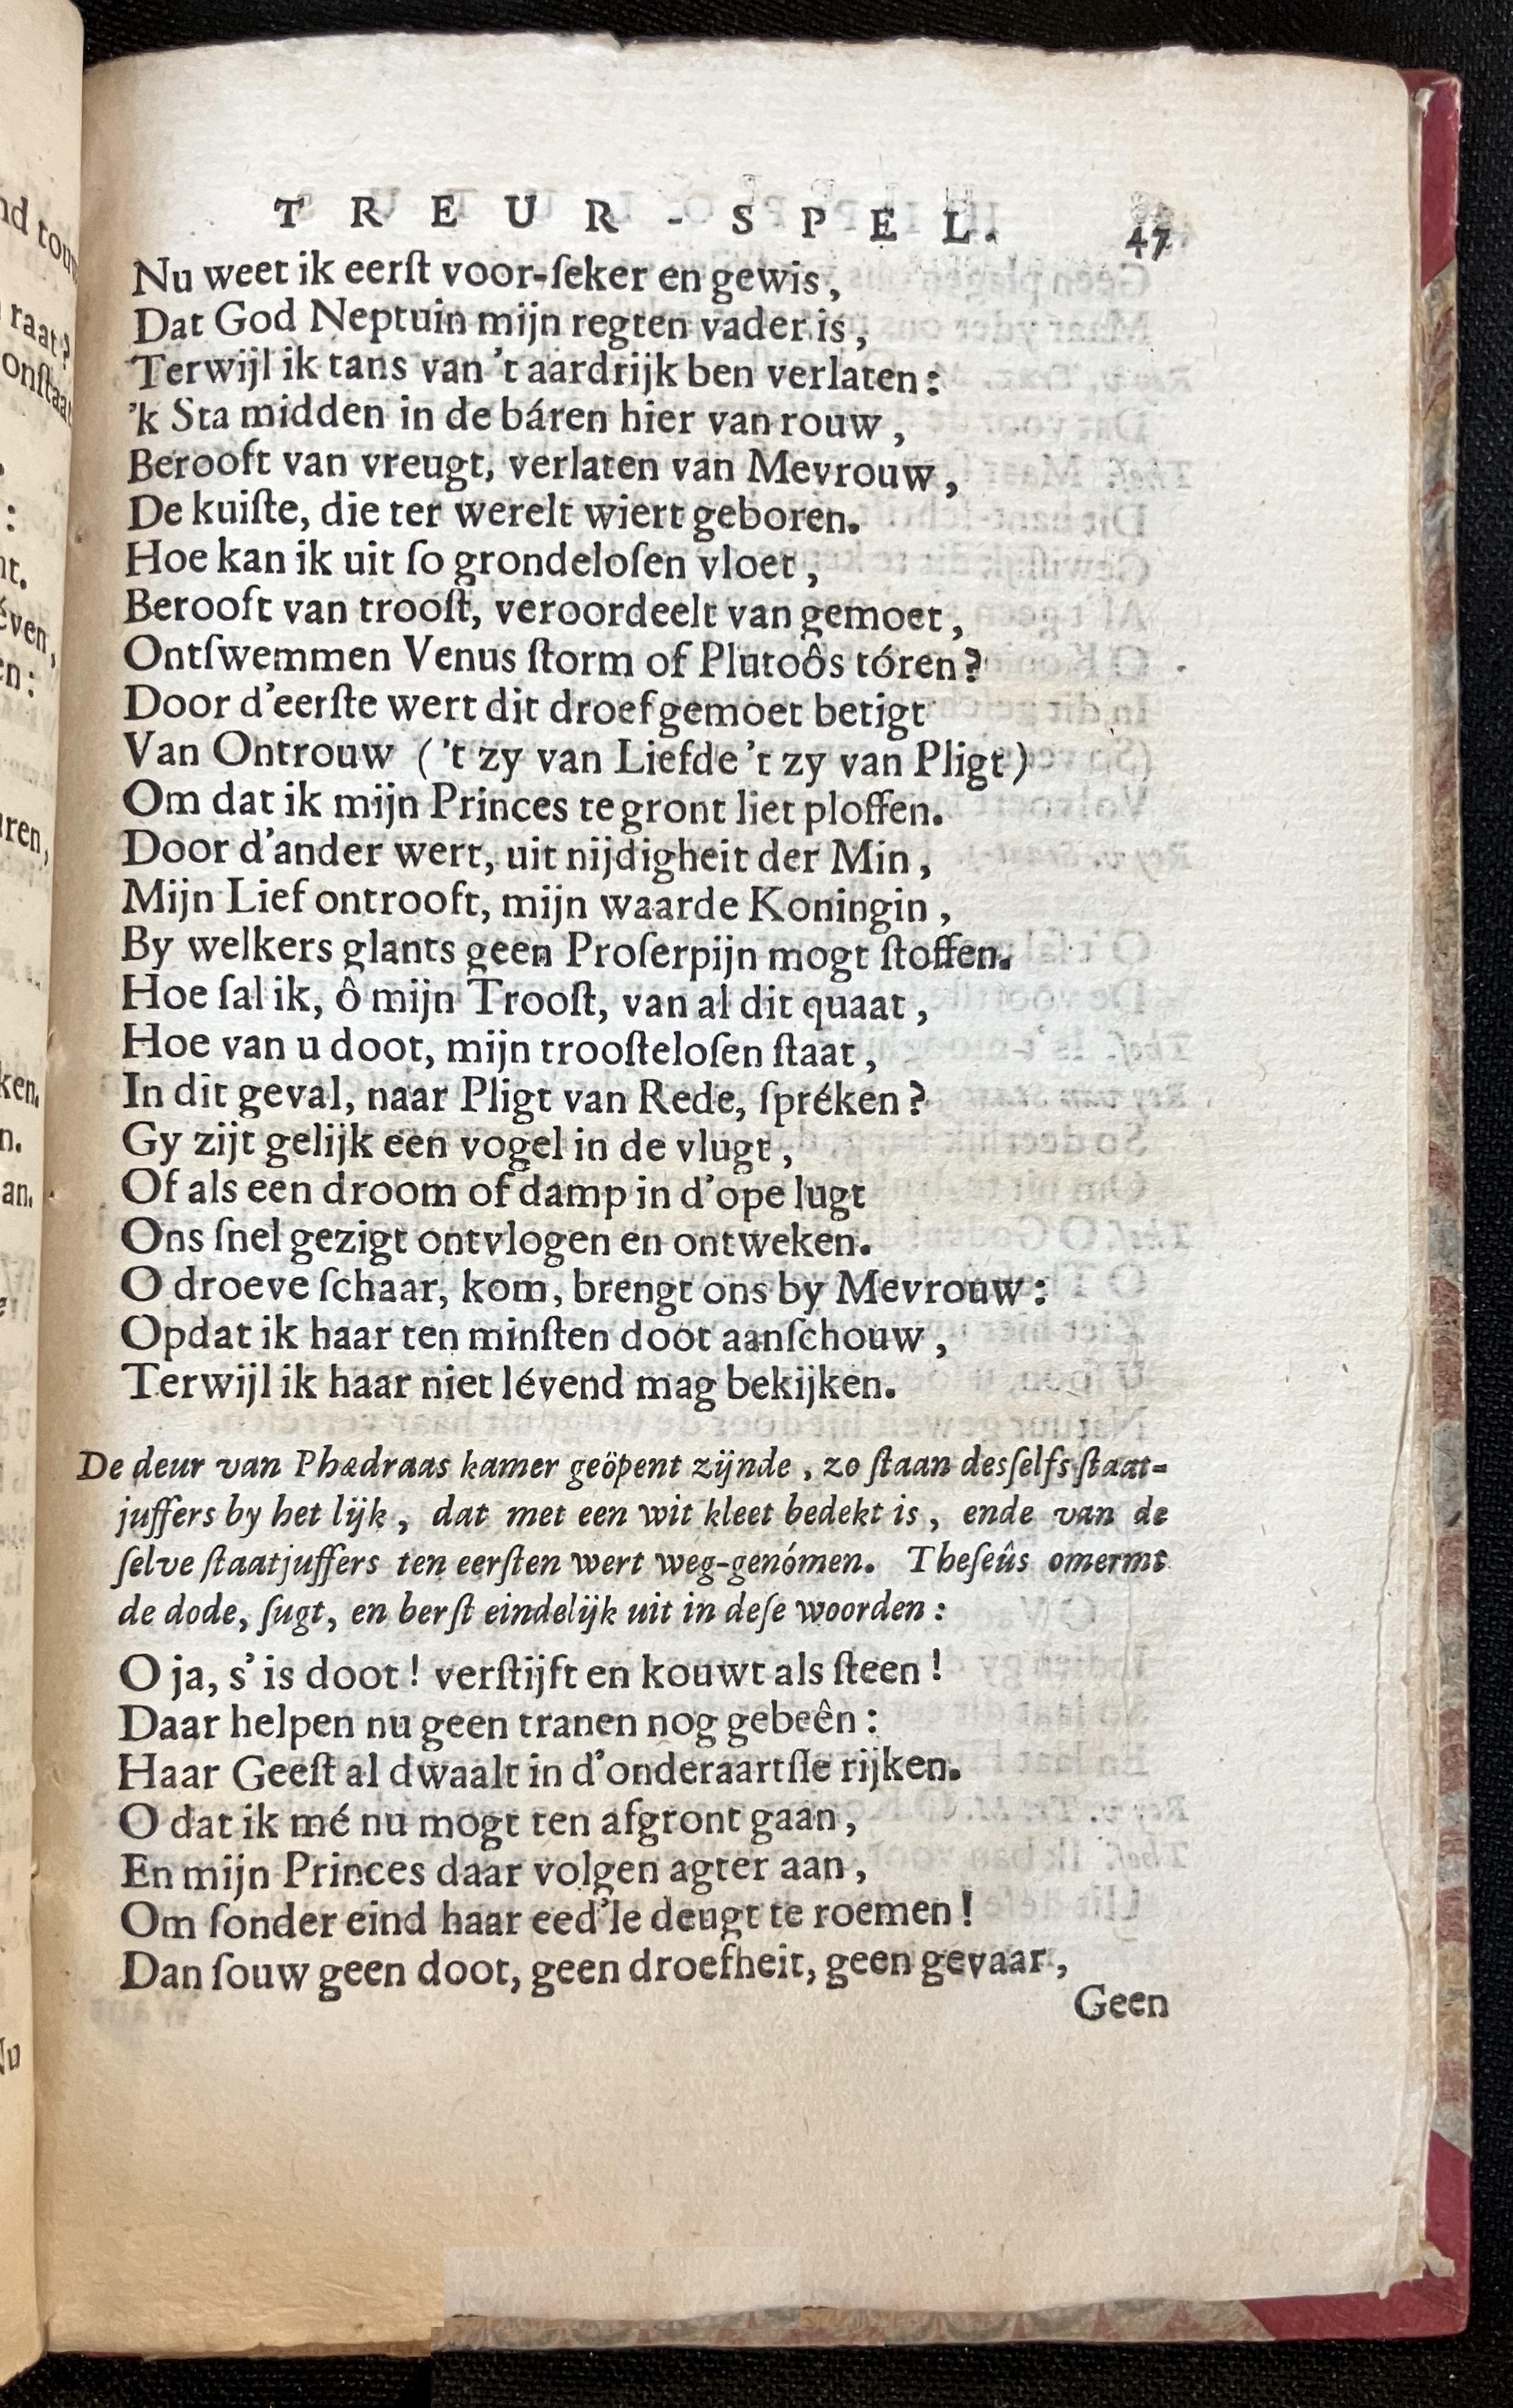 TREUR-SPEL. 47
Nu weet ik eerſt voor-ſeker en gewis,
Dat God Neptuin mijn regten vader is,
Terwijl ik tans van 't aardrijk ben verlaten:
'k Sta midden in de báren hier van rouw,
Berooft van vreugt, verlaten van Mevrouw,
De kuiſte, die ter werelt wiert geboren.
Hoe kan ik uit ſo grondeloſen vloet,
Berooft van trooſt, veroordeelt van gemoet,
Ontſwemmen Venus ſtorm of Plutoôs tóren?
Door d'eerſte wert dit droef gemoet betigt
Van Ontrouw ('t zy van Liefde 't zy van Pligt)
Om dat ik mijn Princes te gront liet ploffen.
Door d'ander wert, uit nijdigheit der Min,
Mijn Lief ontrooft, mijn waarde Koningin,
By welkers glants geen Proſerpijn mogt ſtoffen.
Hoe ſal ik, ô mijn Trooſt, van al dit quaat,
Hoe van u doot, mijn trooſteloſen ſtaat,
In dit geval, naar Pligt van Rede, ſpréken?
Gy zijt gelijk een vogel in de vlugt,
Of als een droom of damp in d'ope lugt
Ons ſnel gezigt ontvlogen en ontweken.
O droeve ſchaar, kom, brengt ons by Mevrouw:
Opdat ik haar ten minſten doot aanſchouw,
Terwijl ik haar niet lévend mag bekijken.
De deur van Phædraas kamer geöpent zijnde, zo ſtaan desſelfs ſtaat-
juffers by het lijk, dat met een wit kleet bedekt is, ende van de
ſelve ſtaatjuffers ten eerſten wert weg-genómen. Theſeûs omermt
de dode, ſugt, en berſt eindelijk uit in deſe woorden:
O ja, s' is doot! verſtijft en kouwt als ſteen!
Daar helpen nu geen tranen nog gebeên:
Haar Geeſt al dwaalt in d'onderaartſle rijken.
O dat ik mé nu mogt ten afgront gaan,
En mijn Princes daar volgen agter aan,
Om ſonder eind haar eed'le deugt te roemen!
Dan ſouw geen doot, geen droefheit, geen gevaar,
Geen